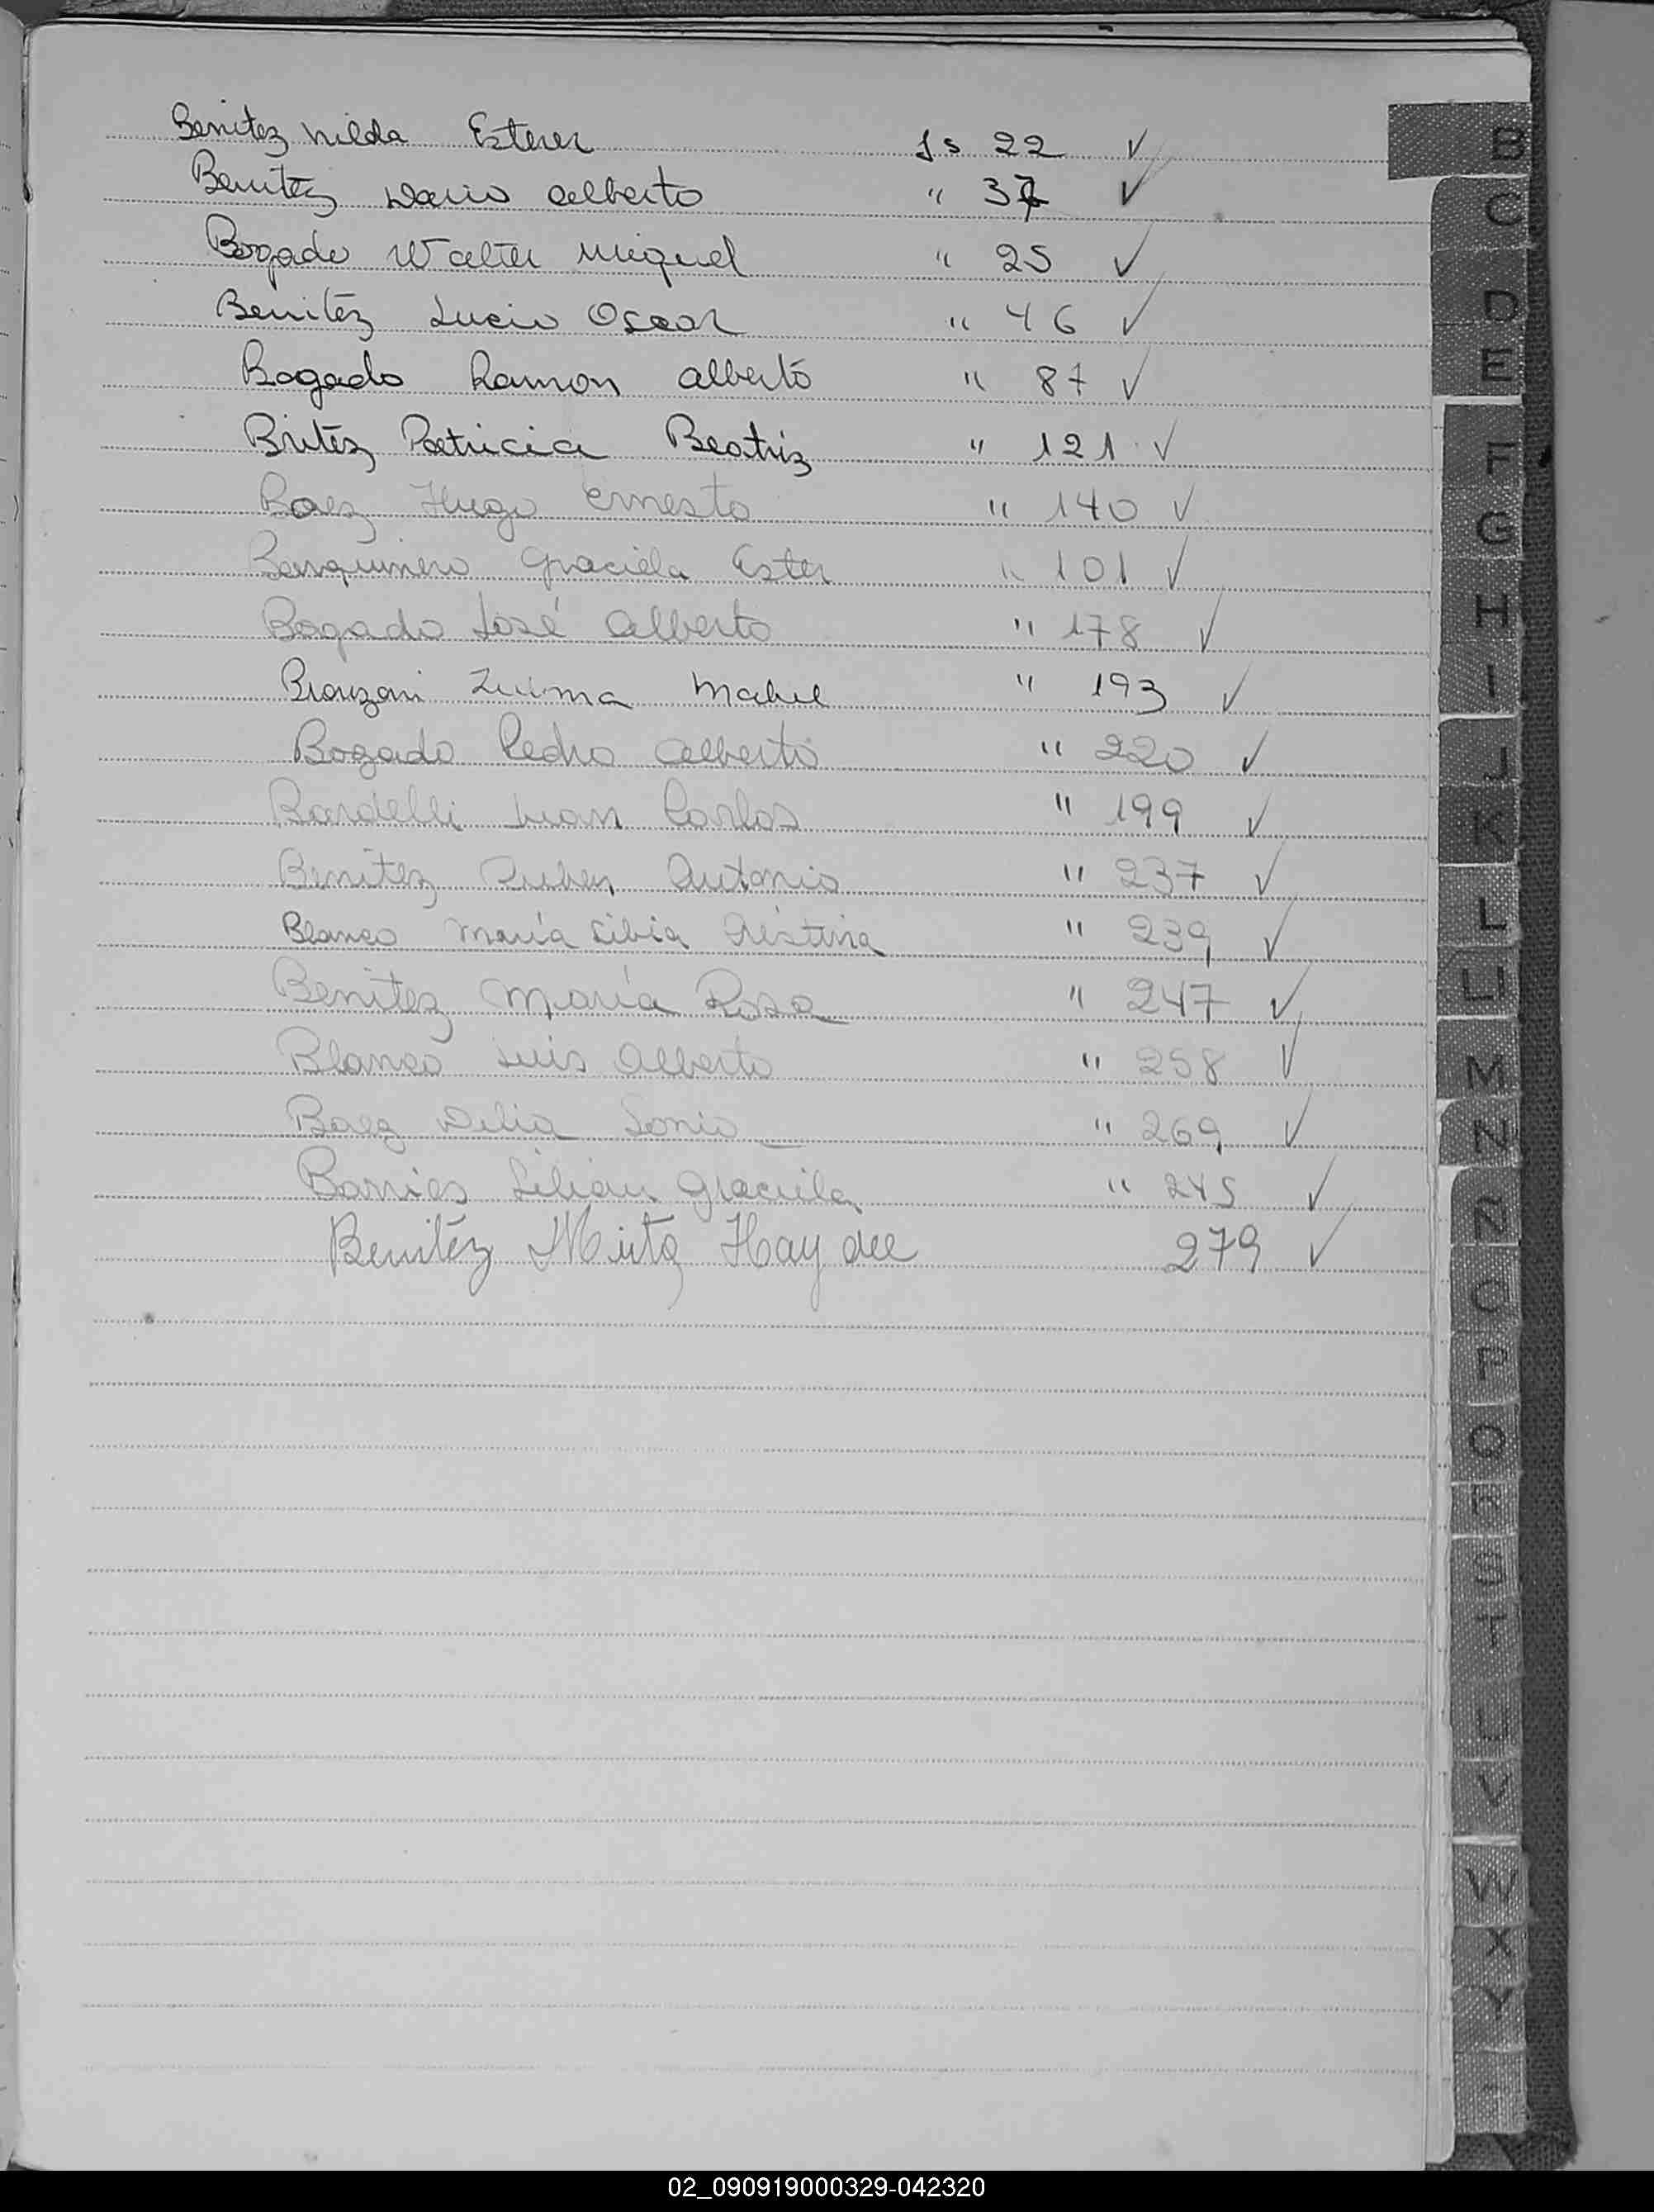 Benitez Nilda Ester fs 22 ✓
Benitez Dario Alberto " 37 ✓
Bogado Walter Miguel " 25 ✓
Benitez Lucio Oscar " 46 ✓
Bogado Ramon Alberto " 87 ✓
Britez Patricia Beatriz " 121 ✓
Baez Hugo Ernesto " 140 ✓
Graciela Ester " 101 ✓
Bogado José Alberto " 178 ✓
Zulma Mabel " 193 ✓
Bogado Pedro Alberto " 220 ✓
Bardelli Juan Carlos " 199 ✓
Benitez Ruben Antonio " 237 ✓
Blanco María Libia Cristina " 239 ✓
Benitez María Rosa " 247 ✓
Blanco Luis Alberto " 258 ✓
Baez Delia Sonia " 269 ✓
Barrios Lilian Graciela " 245 ✓
Benitez Mirta Haydee 279 ✓
B
C
D
E
F
G
H
I
J
K
L
LL
M
N
Ñ
O
P
Q
R
S
T
U
V
W
X
Y
02_090919000329-042320